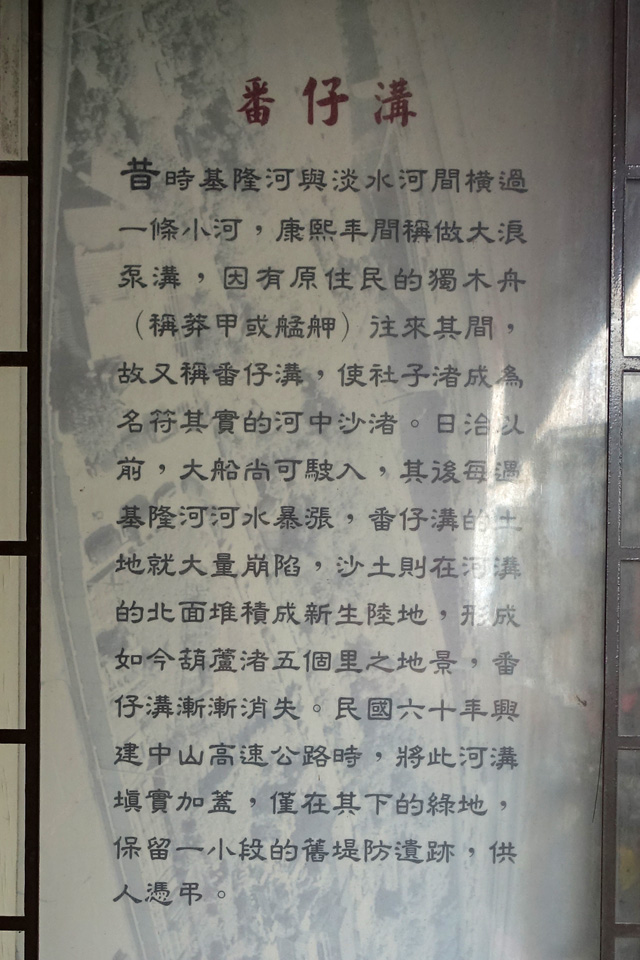 番仔溝
昔時基隆河與淡水河間橫過
一條小河，康熙年間稱做大浪
泵溝，因有原住民的獨木舟
（稱莽甲或艋舺）往來其間，
故又稱番仔溝，使社子渚成為
名符其實的河中沙渚。日治以
前，大船尚可駛入，其後每遇
基隆河河水暴漲，番仔溝的土
地就大量崩陷，沙土則在河溝
的北面堆積成新生陸地，形成
如今葫蘆渚五個里之地景，番
仔溝漸漸消失。民國六十年興
建中山高速公路時，將此河溝
填實加蓋，僅在其下的綠地，
保留一小段的舊堤防遺跡，供
人憑弔。